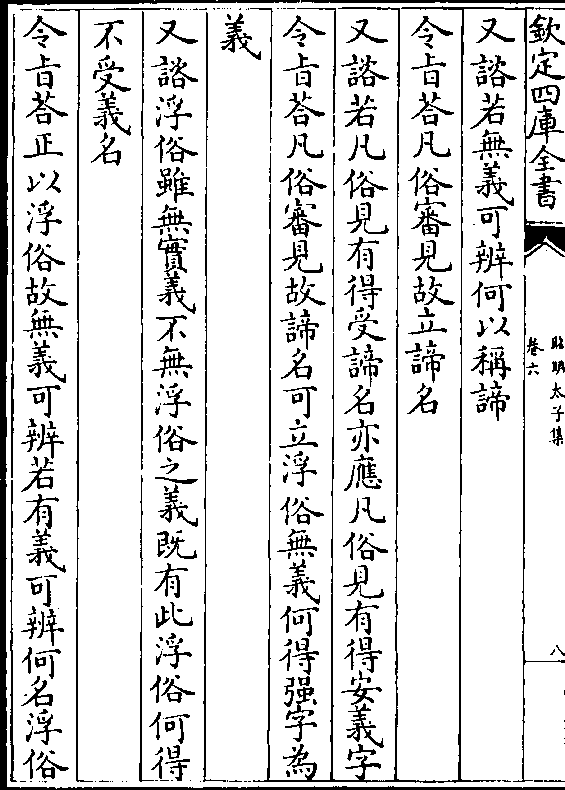 欽定四庫全書
昭明太子集
卷六
八
又諮若無義可辨何以稱諦
令旨荅凡俗審見故立諦名
又諮若凡俗見有得受諦名亦應凡俗見有得安義字
令旨荅凡俗審見故諦名可立浮俗無義何得强字為
義
又諮浮俗雖無實義不無浮俗之義既有此浮俗何得
不受義名
令旨荅正以浮俗故無義可辨若有義可辨何名浮俗